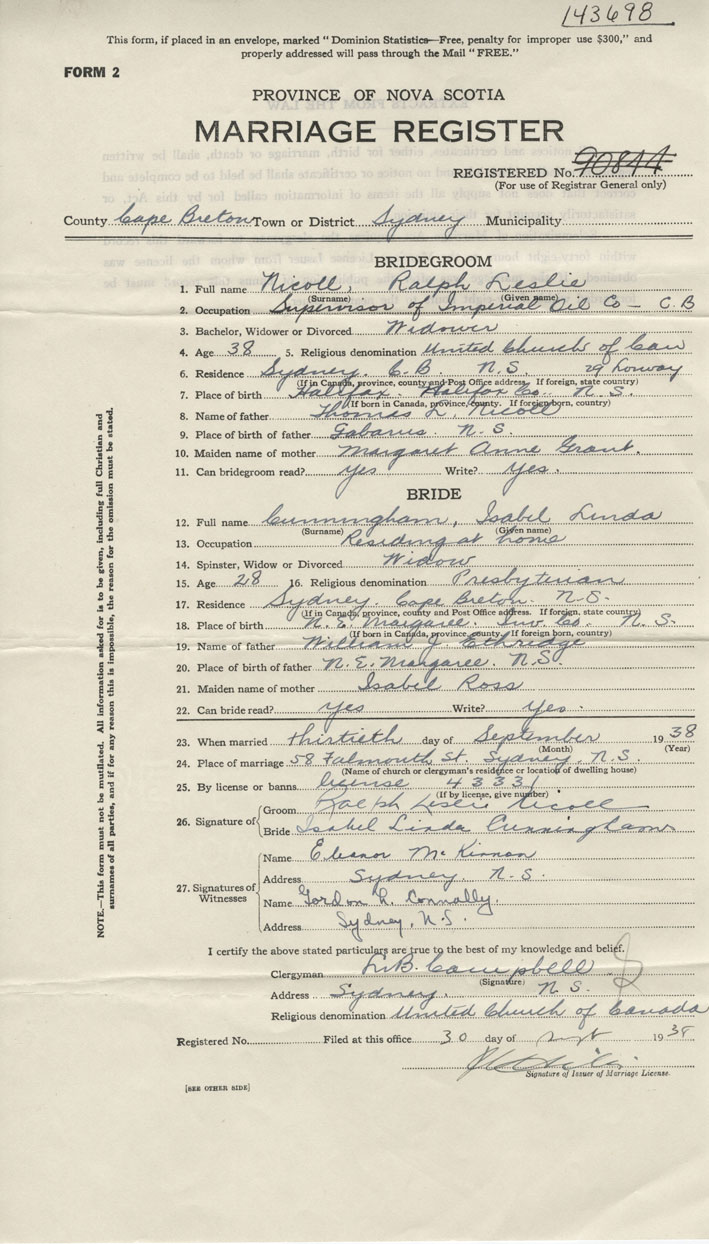 143698
This form, if placed in an envelope, marked "Dominion Statistics—Free, penalty for improper use $300," and
properly addressed will pass through the Mail "FREE."
FORM 2
PROVINCE OF NOVA SCOTIA
MARRIAGE REGISTER
REGISTERED No. 90844
(For use of Registrar General only)
County Cape Breton Town or District Sydney Municipality
BRIDEGROOM
1. Full name Nicoll, Ralph Leslie
(Surname) (Given name)
2. Occupation Supervisor of Imperial Oil Co — C.B
3. Bachelor, Widower or Divorced Widower
4. Age 38 5. Religious denomination United Church of Can
6. Residence Sydney. C.B. N.S. 29
(If in Canada, province, county and Post Office address. If foreign, state country)
7. Place of birth Halifax. Halifax Co. N.S.
(If born in Canada, province, county. If foreign born, country)
8. Name of father Thomas L. Nicoll
9. Place of birth of father Gabarus. N.S.
10. Maiden name of mother Margaret Anne Grant.
11. Can bridegroom read? yes Write? yes.
BRIDE
12. Full name Cunningham, Isabel Linda
(Surname) (Given name)
13. Occupation Residing at home
14. Spinster, Widow or Divorced Widow
15. Age 28 16. Religious denomination Presbyterian
17. Residence Sydney. Cape Breton. N.S.
(If in Canada, province, county and Post Office address. If foreign, state country)
18. Place of birth N.E. Margaree. Inv. Co. N.S.
(If born in Canada, province, county. If foreign born, country)
19. Name of father William J Ethridge
20. Place of birth of father N.E. Margaree. N.S.
21. Maiden name of mother Isabel Ross
22. Can bride read? yes Write? yes.
23. When married thirtieth day of September 1938
(Month) (Year)
24. Place of marriage 58 Falmouth St. Sydney, N.S.
(Name of church or clergyman's residence or location of dwelling house)
25. By license or banns license 43331
(If by license, give number)
26. Signature of
Groom Ralph Leslie Nicoll
Bride Isabel Linda Cunningham
27. Signatures of Witnesses
Name Eleanor McKinnon
Address Sydney N.S.
Name Gordon R. Connally.
Address Sydney, N.S.
I certify the above stated particulars are true to the best of my knowledge and belief.
Clergyman Campbell
(Signature)
Address Sydney, N.S.
Religious denomination United Church of Canada
Registered No. Filed at this office 30 day of Sept 1938
Signature of Issuer of Marriage License.
[SEE OTHER SIDE]
NOTE.—This form must not be mutilated. All information asked for is to be given, including full Christian and
surnames of all parties, and if for any reason this is impossible, the reason for the omission must be stated.